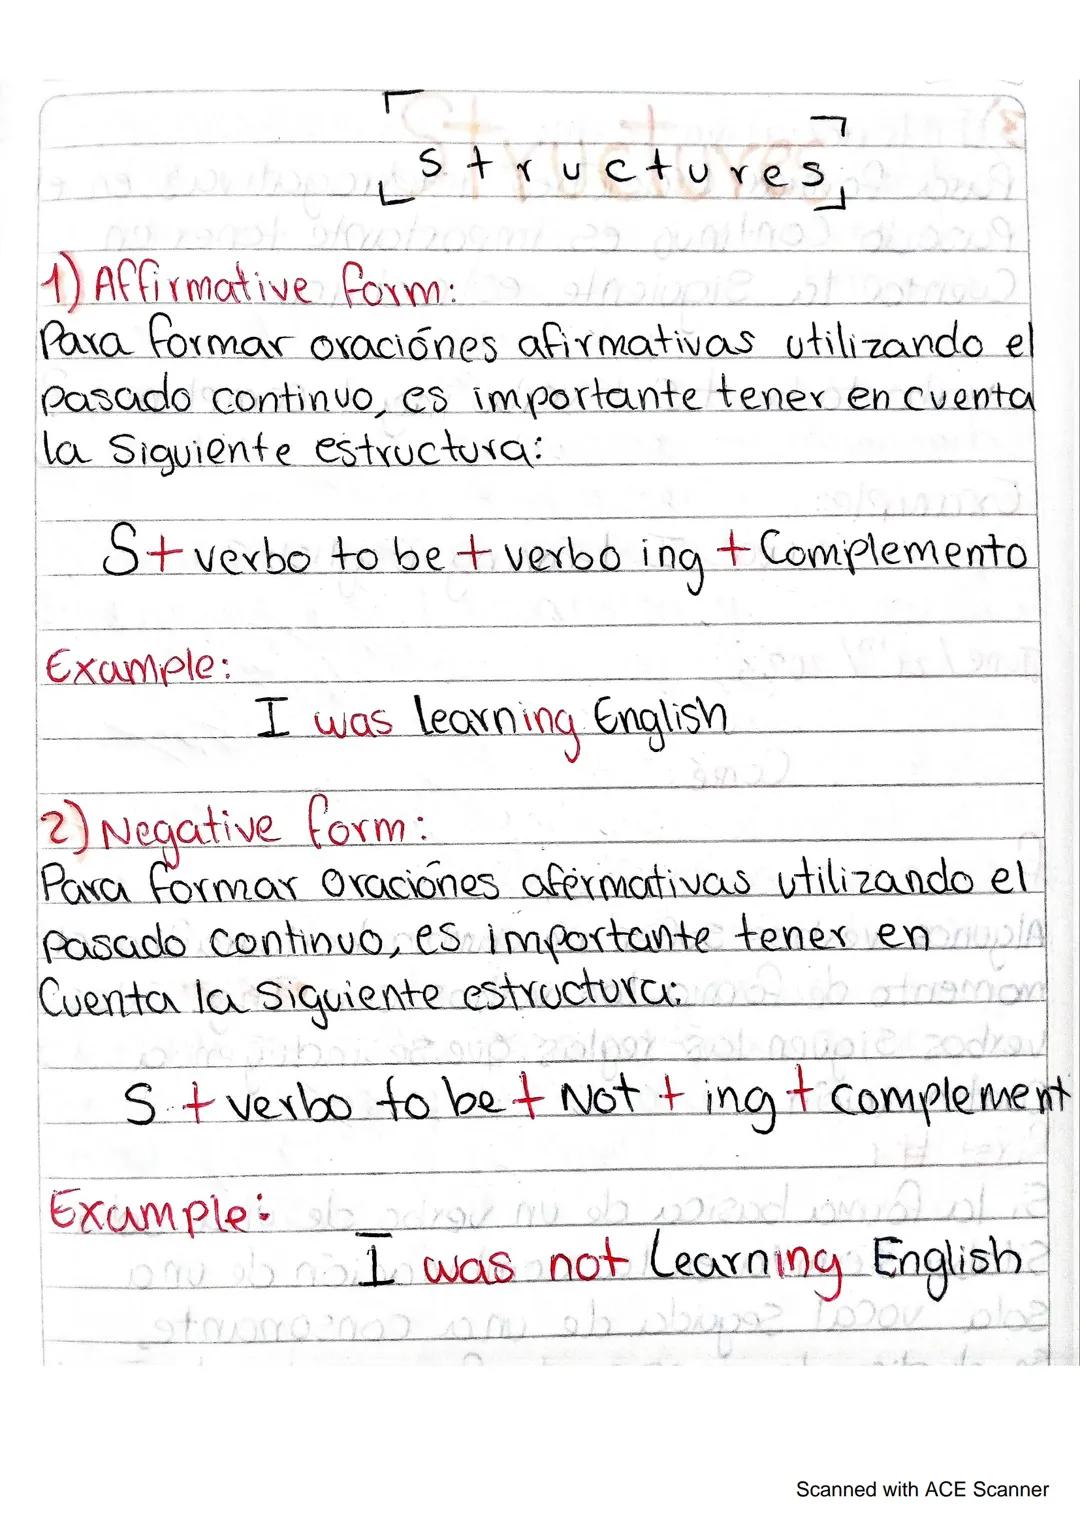 Structures
1) Affirmative form:
Para formar oraciónes afirmativas utilizando el
pasado continuo, es importante tener en cuenta
la siguiente estructura:
S + verbo to be + verbo ing + Complemento
Example:
I was learning English
2) Negative form:
Para formar oraciónes afermativas utilizando el
pasado continuo, es importante tener en
Cuenta la siguiente estructura:
S + verbo to be + Not + ing + complement
Example:
I was not learning English
Scanned with ACE Scanner